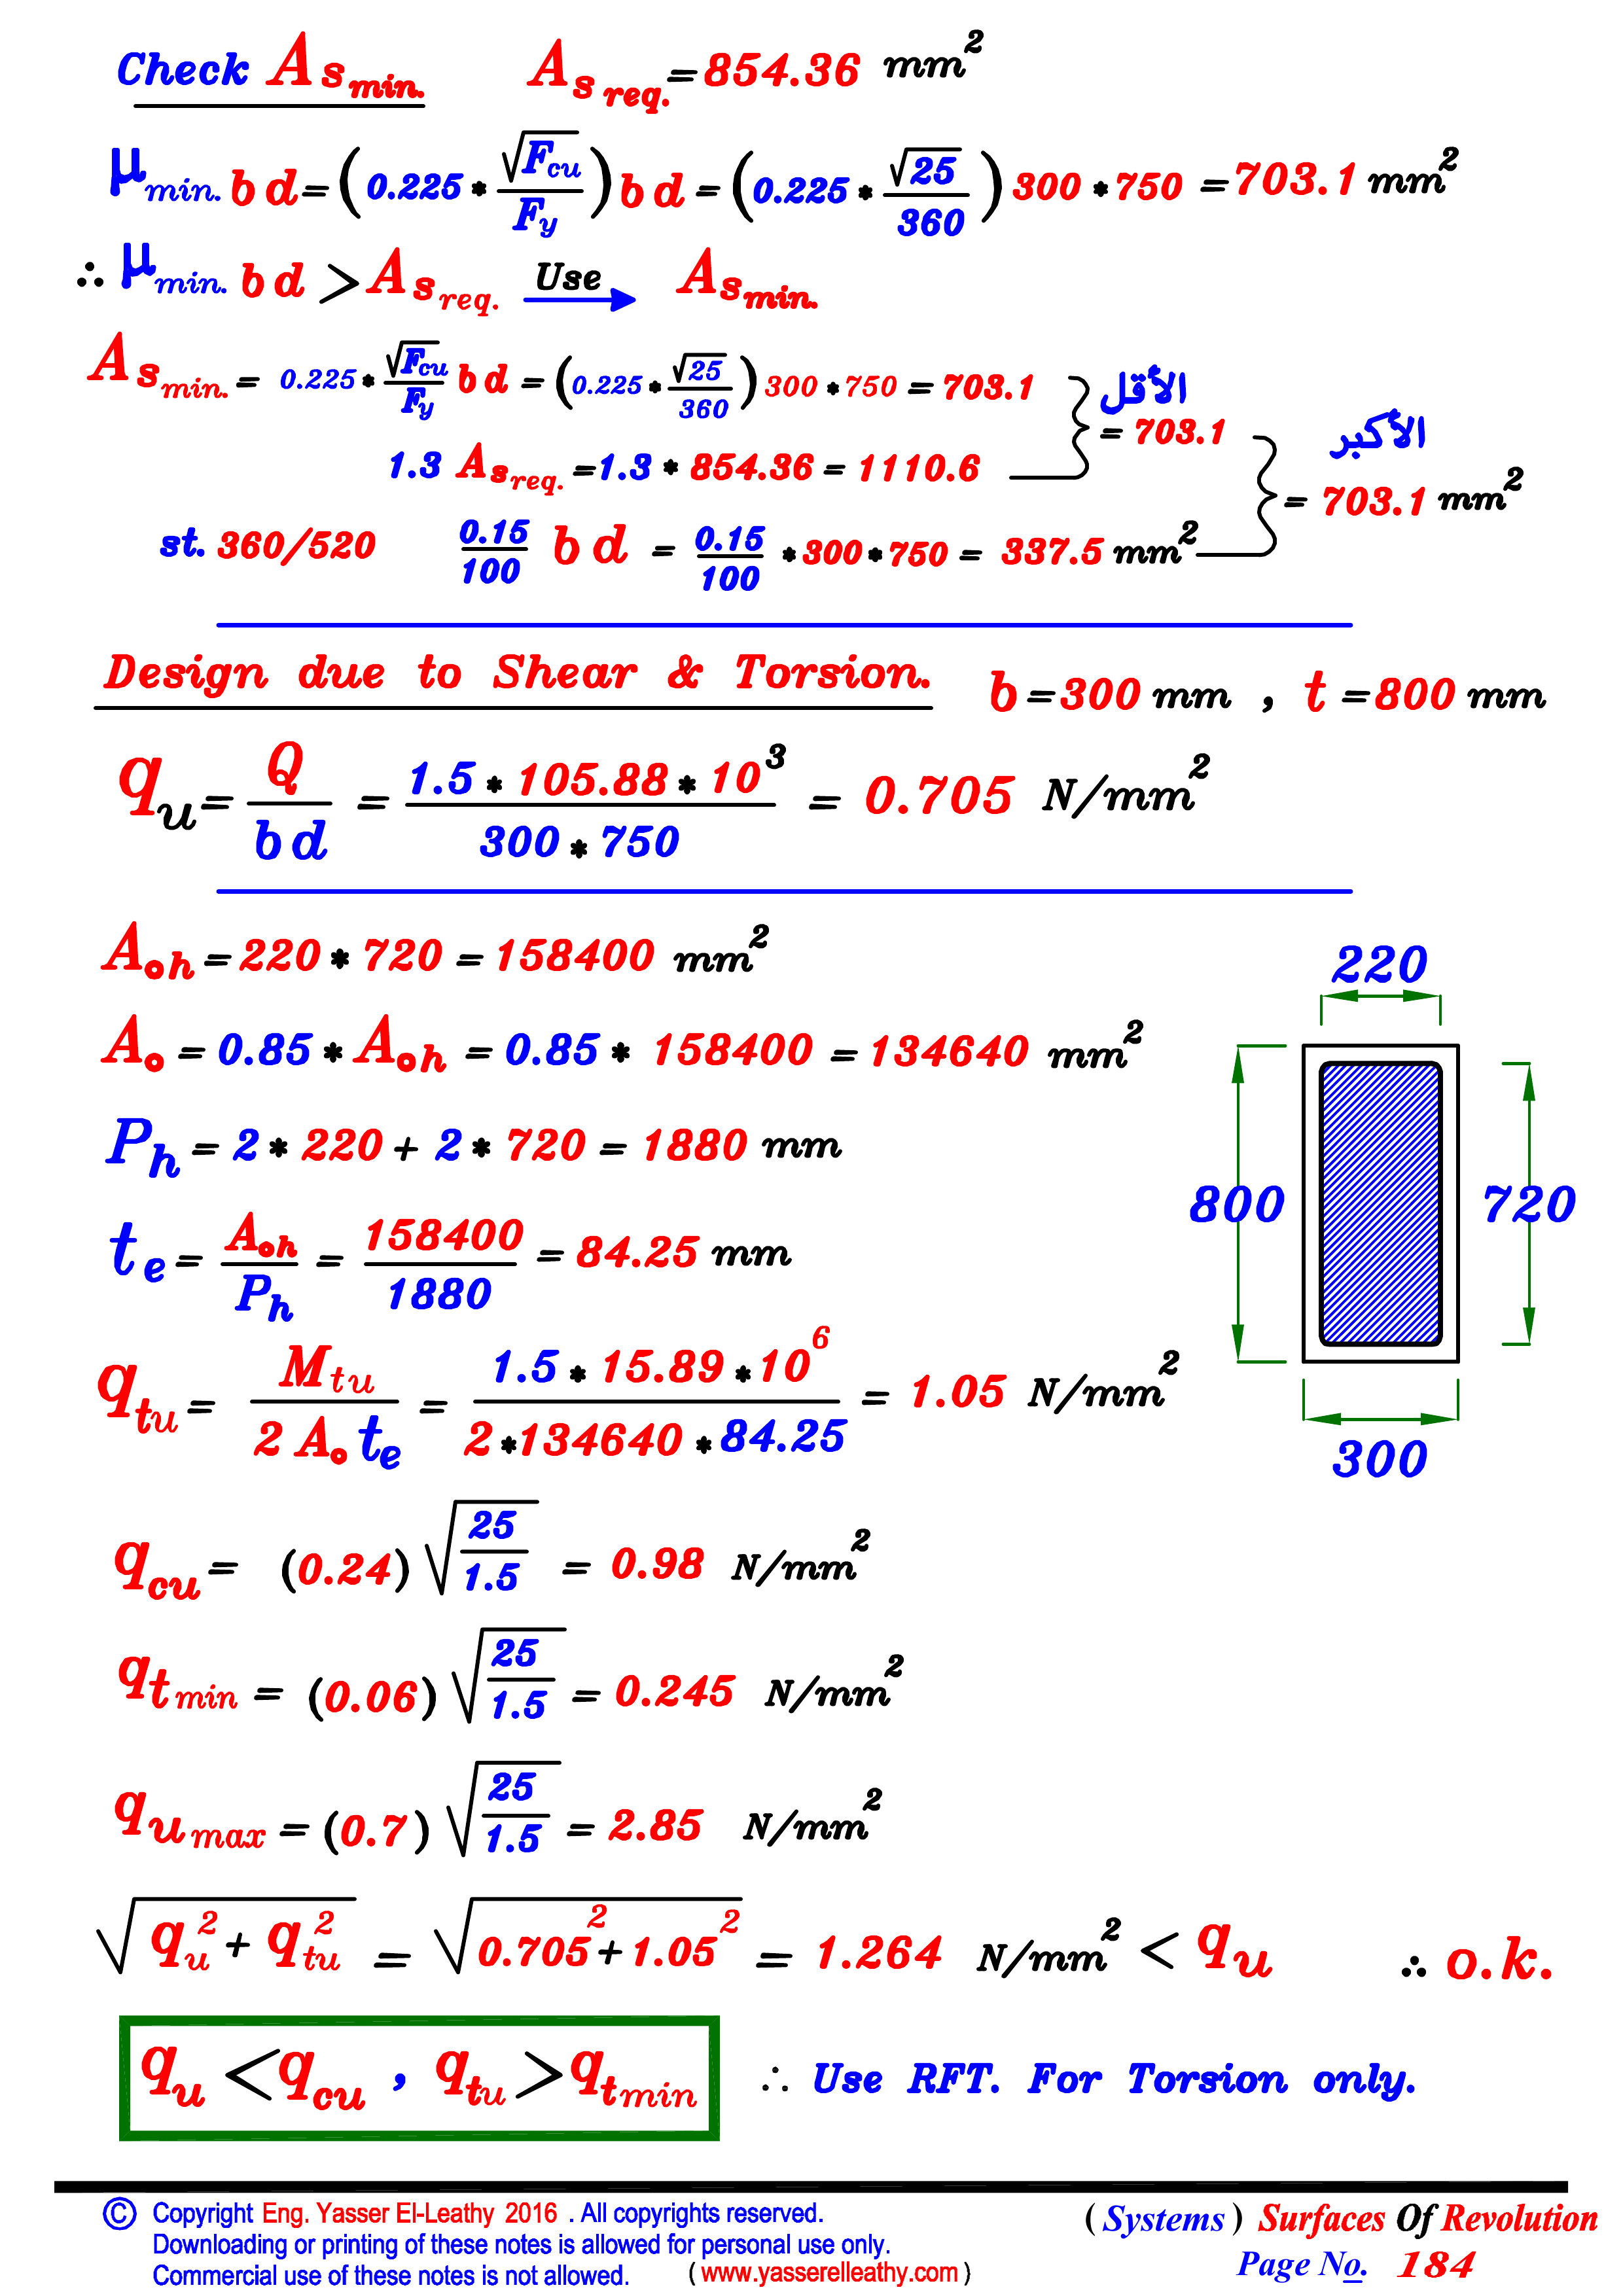 Check A s min. A s req. = 854.36 mm²
μ min. b d = ( 0.225 * √Fcu / Fy ) b d = ( 0.225 * √25 / 360 ) 300 * 750 = 703.1 mm²
∴ μ min. b d > A s req. Use → A s min.
A s min. = 0.225 * √Fcu / Fy b d = ( 0.225 * √25 / 360 ) 300 * 750 = 703.1 الأقل
1.3 A s req. = 1.3 * 854.36 = 1110.6 } = 703.1 الأكبر
st. 360/520 0.15 / 100 b d = 0.15 / 100 * 300 * 750 = 337.5 mm² } = 703.1 mm²
Design due to Shear & Torsion. b = 300 mm , t = 800 mm
q u = Q / b d = 1.5 * 105.88 * 10³ / 300 * 750 = 0.705 N/mm²
A oh = 220 * 720 = 158400 mm²
A o = 0.85 * A oh = 0.85 * 158400 = 134640 mm²
P h = 2 * 220 + 2 * 720 = 1880 mm
t e = A oh / P h = 158400 / 1880 = 84.25 mm
q tu = M tu / 2 A o t e = 1.5 * 15.89 * 10⁶ / 2 * 134640 * 84.25 = 1.05 N/mm²
220
800
720
300
q cu = (0.24) √ 25 / 1.5 = 0.98 N/mm²
q t min = (0.06) √ 25 / 1.5 = 0.245 N/mm²
q u max = (0.7) √ 25 / 1.5 = 2.85 N/mm²
√ q u ² + q tu ² = √ 0.705² + 1.05² = 1.264 N/mm² < q u ∴ o.k.
q u < q cu , q tu > q t min ∴ Use RFT. For Torsion only.
© Copyright Eng. Yasser El-Leathy 2016 . All copyrights reserved.
Downloading or printing of these notes is allowed for personal use only.
Commercial use of these notes is not allowed. ( www.yasserelleathy.com )
( Systems ) Surfaces Of Revolution
Page No. 184